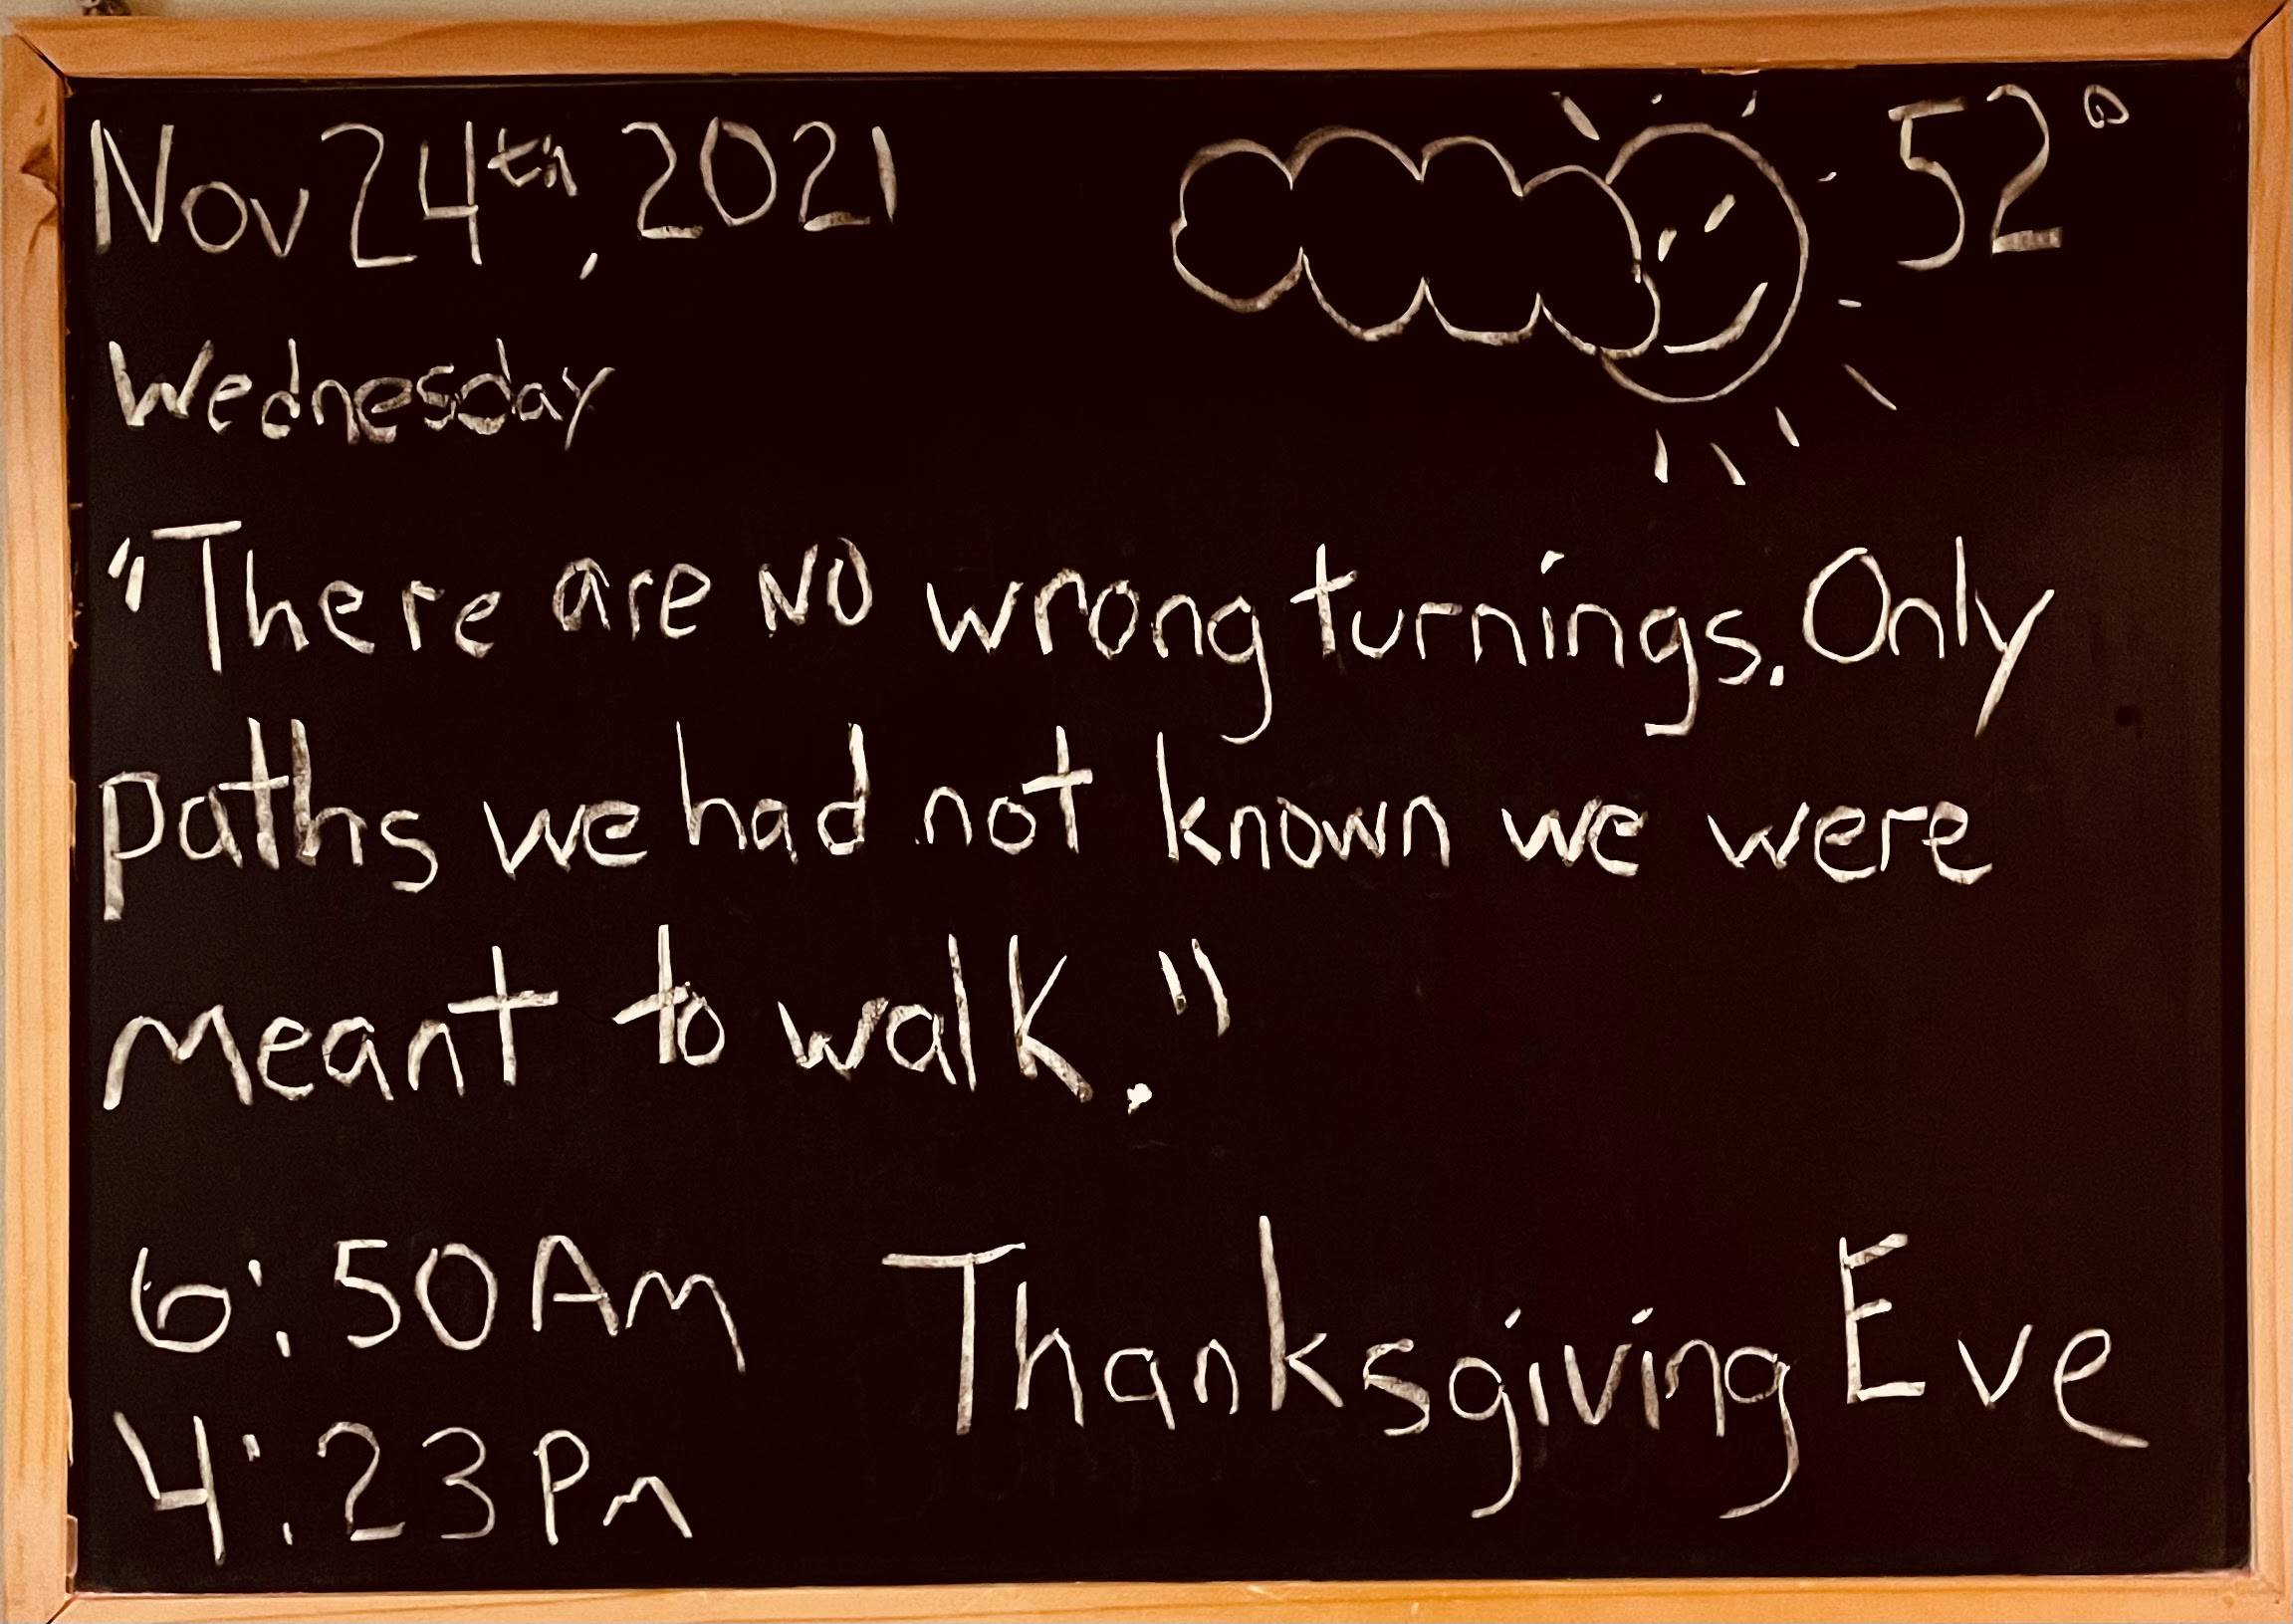 Nov 24th, 2021
52°
Wednesday
"There are NO wrong turnings. Only
paths we had not known we were
meant to walk."
6:50AM
Thanksgiving Eve
4:23Pm